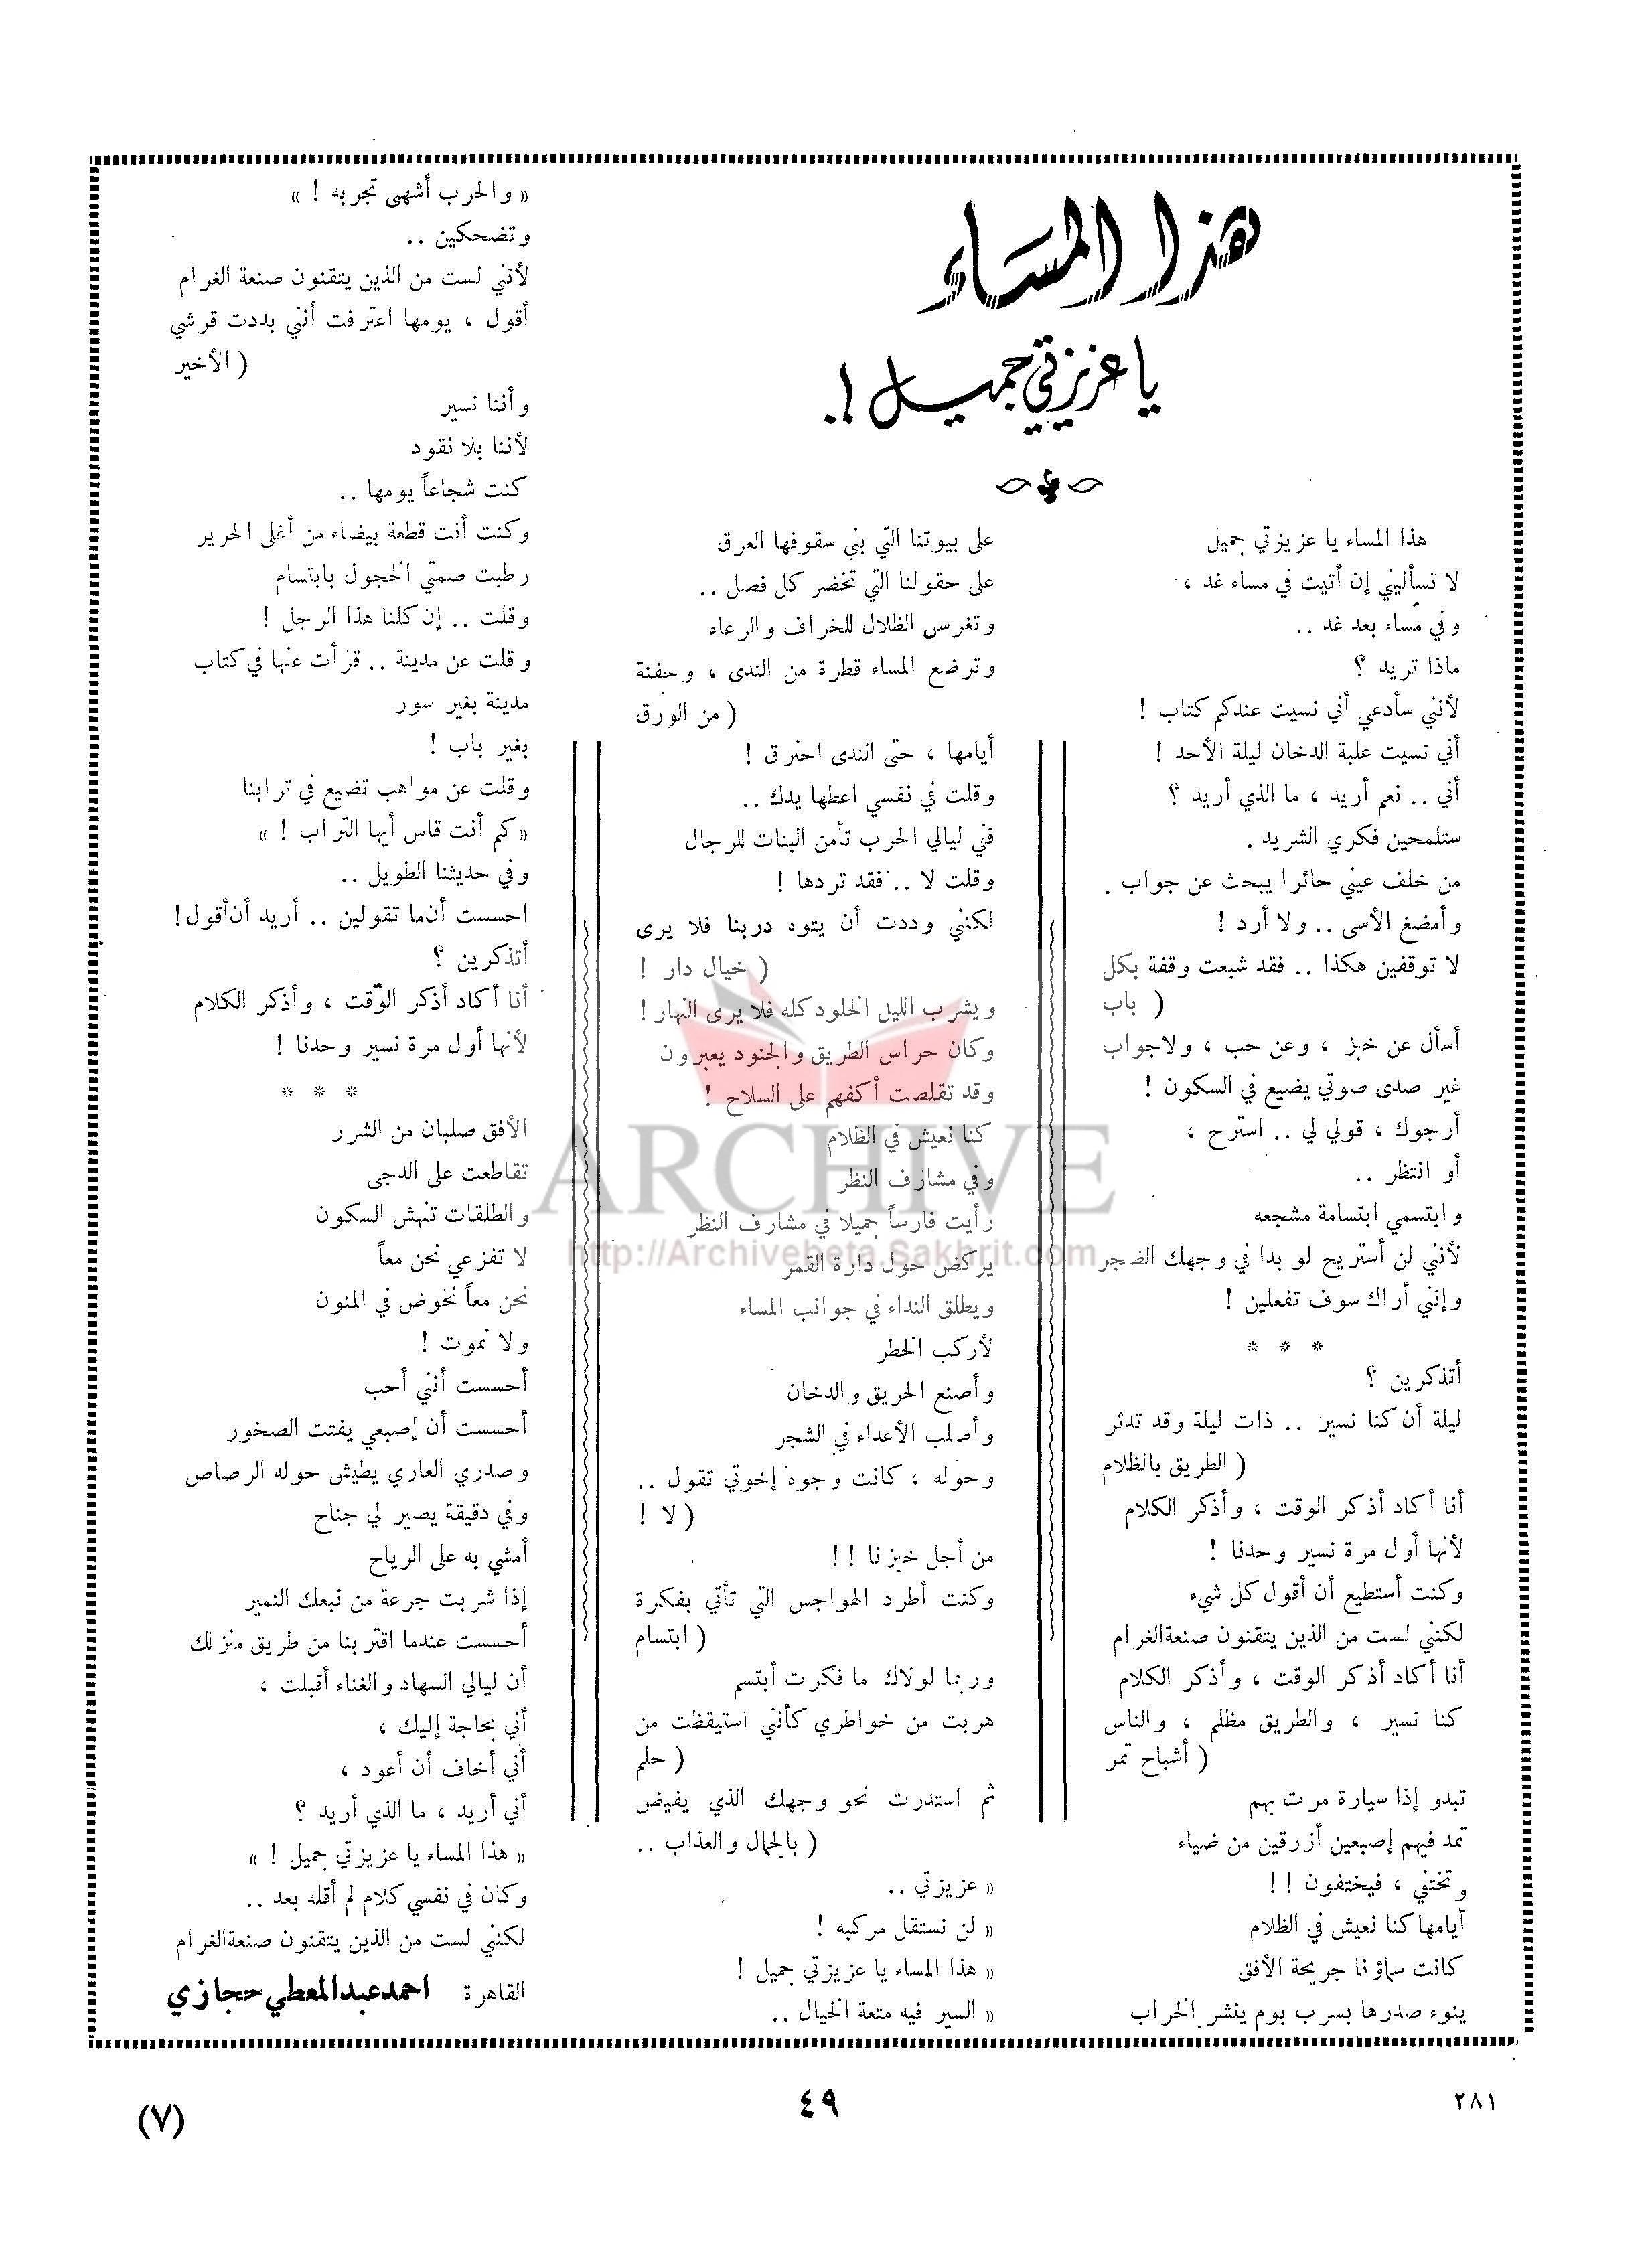 هذا المساء
يا عزيزتي جميل !.
هذا المساء يا عزيزتي جميل
لا تسأليني إن أتيت في مساء غد ،
وفي مساء بعد غد ..
ماذا تريد ؟
لأنني سأدعي أني نسيت عندكم كتاب !
أني نسيت علبة الدخان ليلة الأحد !
أني .. نعم أريد ، ما الذي أريد ؟
ستلمحين فكري الشريد .
من خلف عيني حائرا يبحث عن جواب .
وأمضغ الأسى .. ولا أرد !
لا توقفين هكذا .. فقد شبعت وقفة بكل
( باب
أسأل عن خبز ، وعن حب ، ولاجواب
غير صدى صوتي يضيع في السكون !
أرجوك ، قولي لي .. استرح ،
أو انتظر ..
وابتسمي ابتسامة مشجعه
لأنني لن أستريح لو بدا في وجهك الضجر
وإنني أراك سوف تفعلين !
* * *
أتذكرين ؟
ليلة أن كنا نسير .. ذات ليلة وقد تدثر
( الطريق بالظلام
أنا أكاد أذكر الوقت ، وأذكر الكلام
لأنها أول مرة نسير وحدنا !
وكنت أستطيع أن أقول كل شيء
لكنني لست من الذين يتقنون صنعةالغرام
أنا أكاد أذكر الوقت ، وأذكر الكلام
كنا نسير ، والطريق مظلم ، والناس
( أشباح تمر
تبدو إذا سيارة مرت بهم
تمد فيهم إصبعين أزرقين من ضياء
وتختفي ، فيختفون !!
أيامها كنا نعيش في الظلام
كانت سماؤنا جريحة الأفق
ينوء صدرها بسرب بوم ينشر الخراب
على بيوتنا التي بني سقوفها العرق
على حقولنا التي تخضر كل فصل ..
وتغرس الظلال للخراف والرعاه
وترضع المساء قطرة من الندى ، وحفنة
( من الورق
أيامها ، حتى الندى احترق !
وقلت في نفسي اعطها يدك ..
ففي ليالي الحرب تأمن البنات للرجال
وقلت لا .. فقد تردها !
لكنني وددت أن يتوه دربنا فلا يرى
( خيال دار !
ويشرب الليل الخلود كله فلا يرى النهار !
وكان حراس الطريق والجنود يعبرون
وقد تقلصت أكفهم على السلاح !
كنا نعيش في الظلام
وفي مشارف النظر
رأيت فارساً جميلا في مشارف النظر
يركض حول دارة القمر
ويطلق النداء في جوانب المساء
لأركب الخطر
وأصنع الحريق والدخان
وأصلب الأعداء في الشجر
وحوله ، كانت وجوه إخوتي تقول ..
( لا !
من أجل خبزنا !!
وكنت أطرد الهواجس التي تأتي بفكرة
( ابتسام
وربما لولاك ما فكرت أبتسم
هربت من خواطري كأنني استيقظت من
( حلم
ثم استدرت نحو وجهك الذي يفيض
( بالجمال والعذاب ..
« عزيزتي ..
« لن نستقل مركبه !
« هذا المساء يا عزيزتي جميل !
« السير فيه متعة الخيال ..
« والحرب أشهى تجربه ! »
وتضحكين ..
لأنني لست من الذين يتقنون صنعة الغرام
أقول ، يومها اعترفت أنني بددت قرشي
( الأخير
وأننا نسير
لأننا بلا نقود
كنت شجاعاً يومها ..
وكنت أنت قطعة بيضاء من أغلى الحرير
رطبت صمتي الخجول بابتسام
وقلت .. إن كلنا هذا الرجل !
وقلت عن مدينة .. قرأت عنها في كتاب
مدينة بغير سور
بغير باب !
وقلت عن مواهب تضيع في ترابنا
« كم أنت قاس أيها التراب ! »
وفي حديثنا الطويل ..
احسست أن‌ما تقولين .. أريد أن‌أقول!
أتذكرين ؟
أنا أكاد أذكر الوقت ، وأذكر الكلام
لأنها أول مرة نسير وحدنا !
* * *
الأفق صلبان من الشرر
تقاطعت على الدجى
والطلقات تنهش السكون
لا تفزعي نحن معاً
نحن معاً نخوض في المنون
ولا نموت !
أحسست أنني أحب
أحسست أن إصبعي يفتت الصخور
وصدري العاري يطيش حوله الرصاص
وفي دقيقة يصير لي جناح
أمشي به على الرياح
إذا شربت جرعة من نبعك النمير
أحسست عندما اقتربنا من طريق منزلك
أن ليالي السهاد والغناء أقبلت ،
أني بحاجة إليك ،
أني أخاف أن أعود ،
أني أريد ، ما الذي أريد ؟
« هذا المساء يا عزيزتي جميل ! »
وكان في نفسي كلام لم أقله بعد ..
لكنني لست من الذين يتقنون صنعةالغرام
القاهرة احمد عبد المعطي حجازي
ARCHIVE
http://Archivebeta.Sakhrit.com
٢٨١
٤٩
(٧)